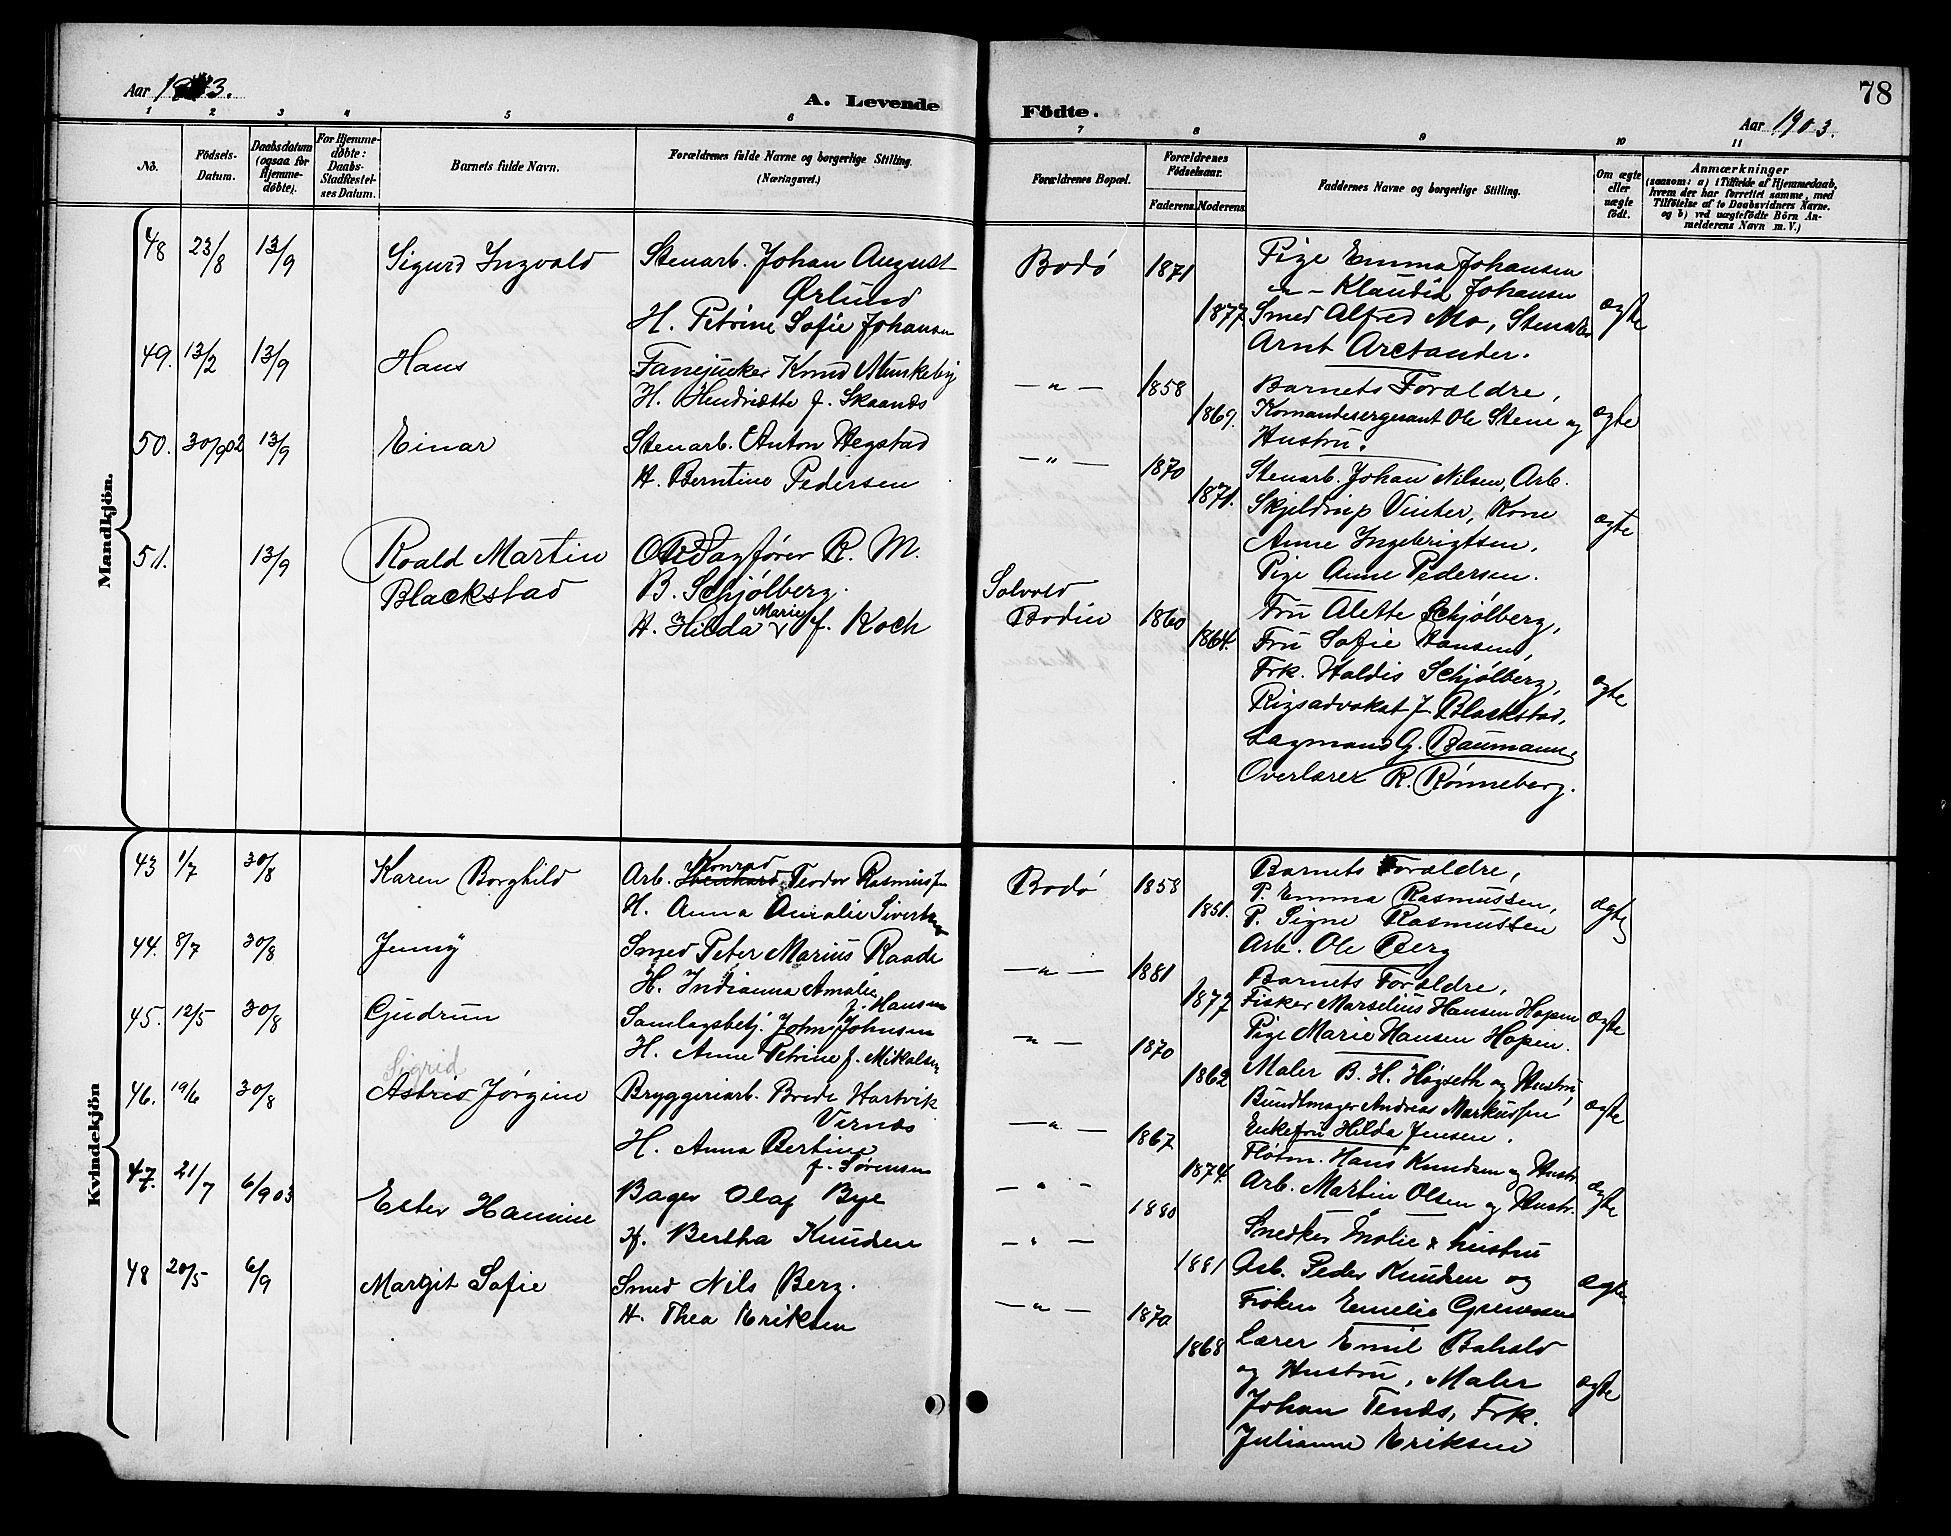 Aar 1903.
A. Levende
Födte.
Aar 1903.
78
1 2 3 4 5 6 7 8 9 10 11
No.
Födsels-Datum.
Daabsdatum (ogsaa for Hjemme-döbte).
For Hjemme-döbte: Daabs-Stadfæstel-ses Datum.
Barnets fulde Navn.
Forældrenes fulde Navne og borgerlige Stilling. (Næringsvei.)
Forældrenes Bopæl.
Forældrenes Födselsaar.
Faderens. Moderens.
Faddernes Navne og borgerlige Stilling.
Om ægte eller uægte födt.
Anmærkninger
(saasom: a) i Tilfælde af Hjemmedaab, hvem der har forrettet samme, med Tilföielse af to Daabsvidners Navne. og b) ved uægtefödte Börn An-melderens Navn m. V.)
Mandkjön.
48 23/8 13/9 Sigurd Ingvald
Stenarb. Johan August
Ørlund
H. Petrine Sofie Johansen
Bodø 1871 1877
Pige Emma Johansen
-"- Klaudia Johansen
Smed Alfred Mo, Stenarb.
Arnt Arctander.
ægte
49. 13/2 13/9 Hans
Fanejunker Knud Munkeby
H. Hendriette f. Skaanes
-"- 1858 1869.
Barnets Forældre,
Komandesergeant Ole Stene og
Hustru.
ægte
50. 30/9 02 13/9 Einar
Stenarb. Anton Hegstad
H. Berntine Pedersen
-"- 1870 1871.
Stenarb. Johan Nilsen, Arb.
Skjeldrup Vinter, Kone
Anne Ingebrigtsen,
Pige Anne Pedersen.
ægte
51. 13/9 Roald Martin
Blackstad
R. M.
B. Schjølberg.
H. Hilda Marie f. Koch
Solvold
Bodin 1860 1864.
Fru Alette Schjølberg,
Fru Sofie Hansen,
Frk. Haldis Schjølberg,
Rigsadvokat J. Blackstad,
Lagmand G. Baumann,
Overlærer R. Rønneberg.
ægte
Kvindekjön
43 1/7 30/8 Karen Borghild
Konrad
Arb. Teodor Rasmussen
H. Anna Amalie Sivertsen
Bodø 1858 1851.
Barnets Forældre,
P. Emma Rasmussen,
P. Signe Rasmussen
Arb. Ole Berg
ægte
44. 8/7 30/8 Jenny
Smed Peter Marius Raade
H. Indianna Amalie
f. Hansen
-"- 1881 1877
Barnets Forældre,
Fisker Marselius Hansen Hopen
Pige Marie Hansen Hopen.
ægte
45. 12/5 30/8 Gudrun
Samlagsbetj. John Johnsen
H. Anne Petrine f. Mikalsen
-"- 1870 1862
Maler B. H. Høgseth og Hustru,
Bundtmager Andreas Markussen
Enkefru Hilda Jensen.
ægte
Sigrid
46. 19/6 30/8 Astrid Jørgine
Bryggeriarb. Brede Hartvik
Vernes
H. Anna Bertine
f. Sørensen
-"- 1867 1874.
Fløtm. Hans Knudsen og Hustr.
Arb. Martin Olsen og Hustr.
ægte
47. 21/7 6/9 03 Ester Hansine
Bager Olaf Bye
H. Bertha Knudsen
-"- 1880 1881
Snedker Molie & hustru
Arb. Peder Knudsen og
Frøken Emelie
ægte
48 20/5 6/9 Margit Sofie
Smed Nils Berg.
H. Thea Eriksen
-"- 1870 1868
Lærer Emil Bahald
og Hustru, Maler
Johan Tenås, Frk.
Julianne Eriksen
ægte